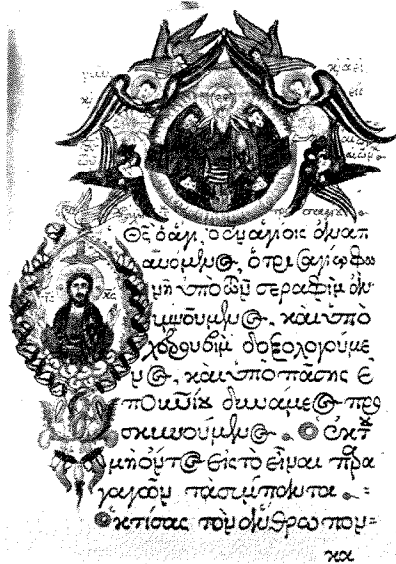 Θς ὁ ἅγι, ὁ ἐν ἁγίοις ἀναπ
αυόμενος, ὁ τρισαγίω φω
νῆ ὑπὸ τῶν σεραφὶμ ἀνυ
μνούμενος, καὶ ὑπὸ
χερουβὶμ δοξολογούμε
νος, καὶ ὑπὸ πάσης ἐ
πουνίου δυνάμεως προ
σκυνούμενος. Ὁ ἐκ τοῦ
μὴ ὄντος εἰς τὸ εἶναι παρα
γαγὼν τὰ σύμπαντα.
ὁ κτίσας τὸν ἄνθρωπον
κα